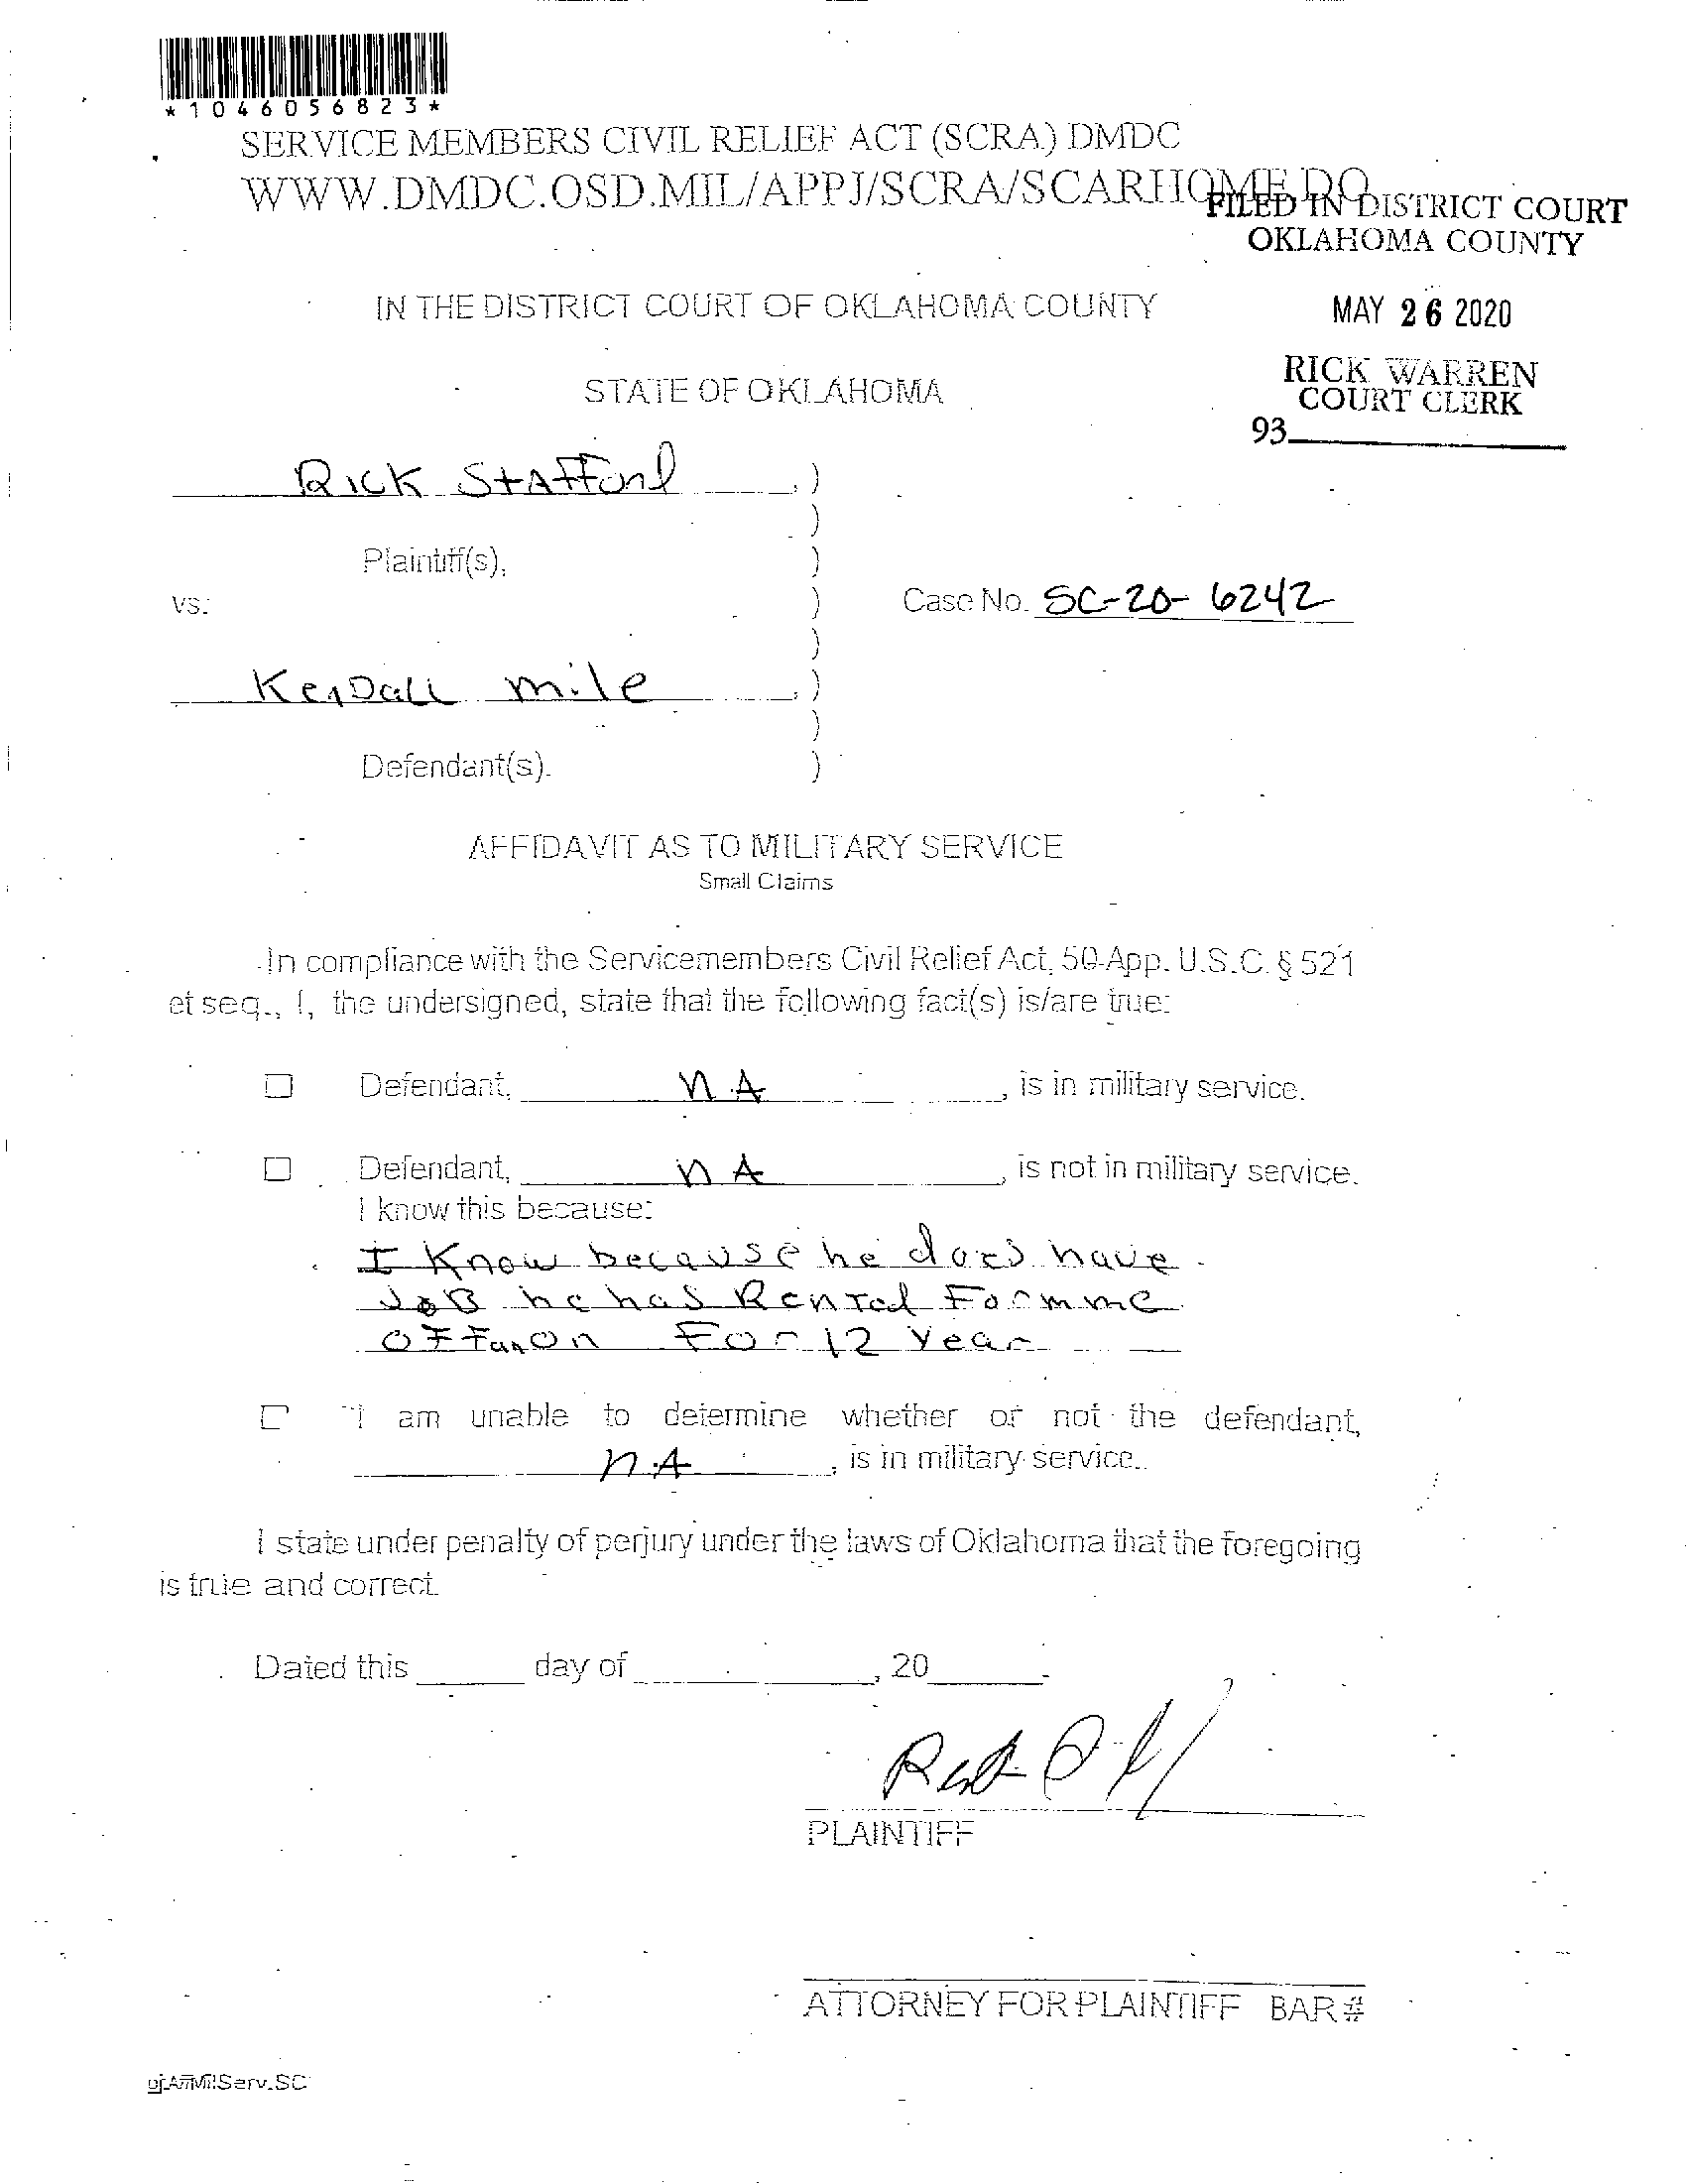 *1046056823*
SERVICE MEMBERS CIVIL RELIEF ACT (SCRA) DMDC
WWW.DMDC.OSD.MIL/APPJ/SCRA/SCARHOME.DO
FILED IN DISTRICT COURT
OKLAHOMA COUNTY
IN THE DISTRICT COURT OF OKLAHOMA COUNTY
MAY 26 2020
STATE OF OKLAHOMA
RICK WARREN
COURT CLERK
93
Rick Stafford ,)
)
Plaintiff(s), )
vs. )
Case No. SC-20-6242
)
Kendall mile ,)
)
Defendant(s). )
AFFIDAVIT AS TO MILITARY SERVICE
Small Claims
In compliance with the Servicemembers Civil Relief Act, 50 App. U.S.C. § 521
et seq., I, the undersigned, state that the following fact(s) is/are true:
☐ Defendant, NA, is in military service.
☐ Defendant, NA, is not in military service.
I know this because:
I Know because he does have
JOB he has Rented Form me
OFF an On For 12 Year
☐ I am unable to determine whether or not the defendant,
NA, is in military service.
I state under penalty of perjury under the laws of Oklahoma that the foregoing
is true and correct.
Dated this ____ day of ____, 20____.
PLAINTIFF
ATTORNEY FOR PLAINTIFF BAR #